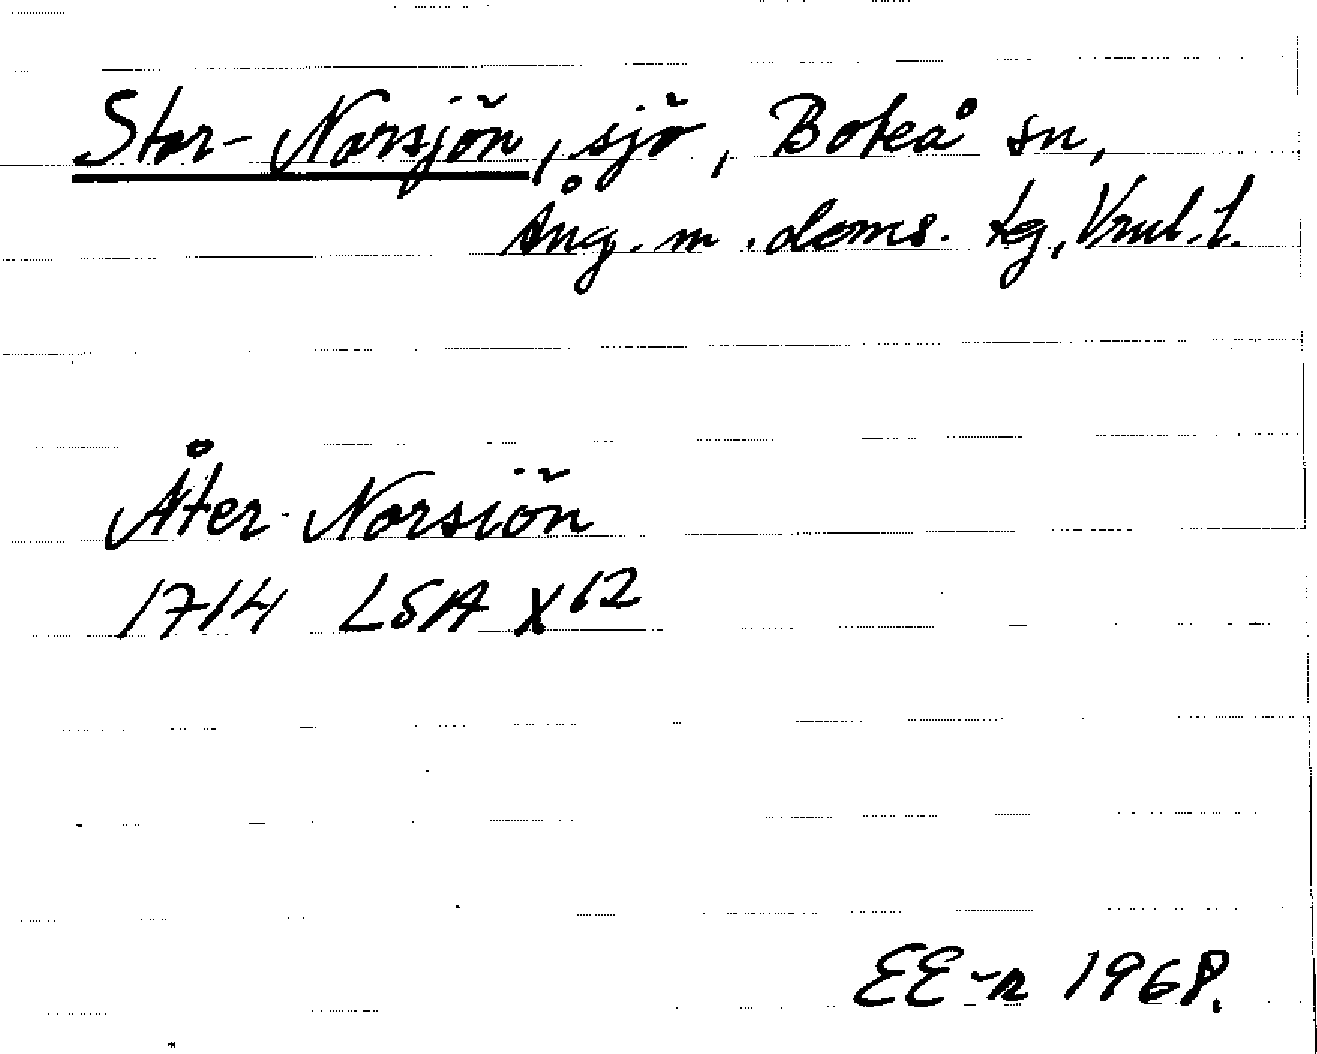 Stor-Norsjön, sjö, Boteå sn,
Ång. m. doms. tg, Vnrl. l.
Åter-Norsiön
1714 LSA X 62
EE-n 1968.